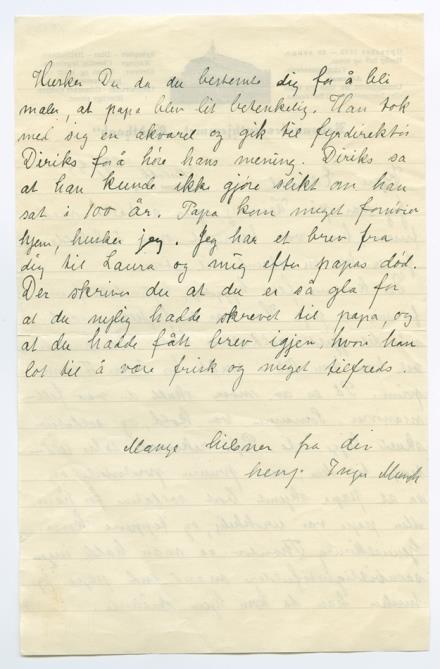 Husker Du da du bestemte dig for å bli
maler, at papa blev lit betenkelig. Han tok
med sig en akvarel og gik til fyrdirektør
Diriks for å høre hans mening. Diriks sa
at han kunde ikke gjøre slikt om han
sat i 100 år. Papa kom meget fornøiet
hjem, husker jeg. Jeg har et brev fra
dig til Laura og mig efter papas død.
Der skriver du at du er så gla for
at du nylig hadde skrevet til papa, og
at du hadde fått brev igjen, hvor han
lot til å være frisk og meget tilfreds.
Mange hilsner fra din
heng. Inger Munch